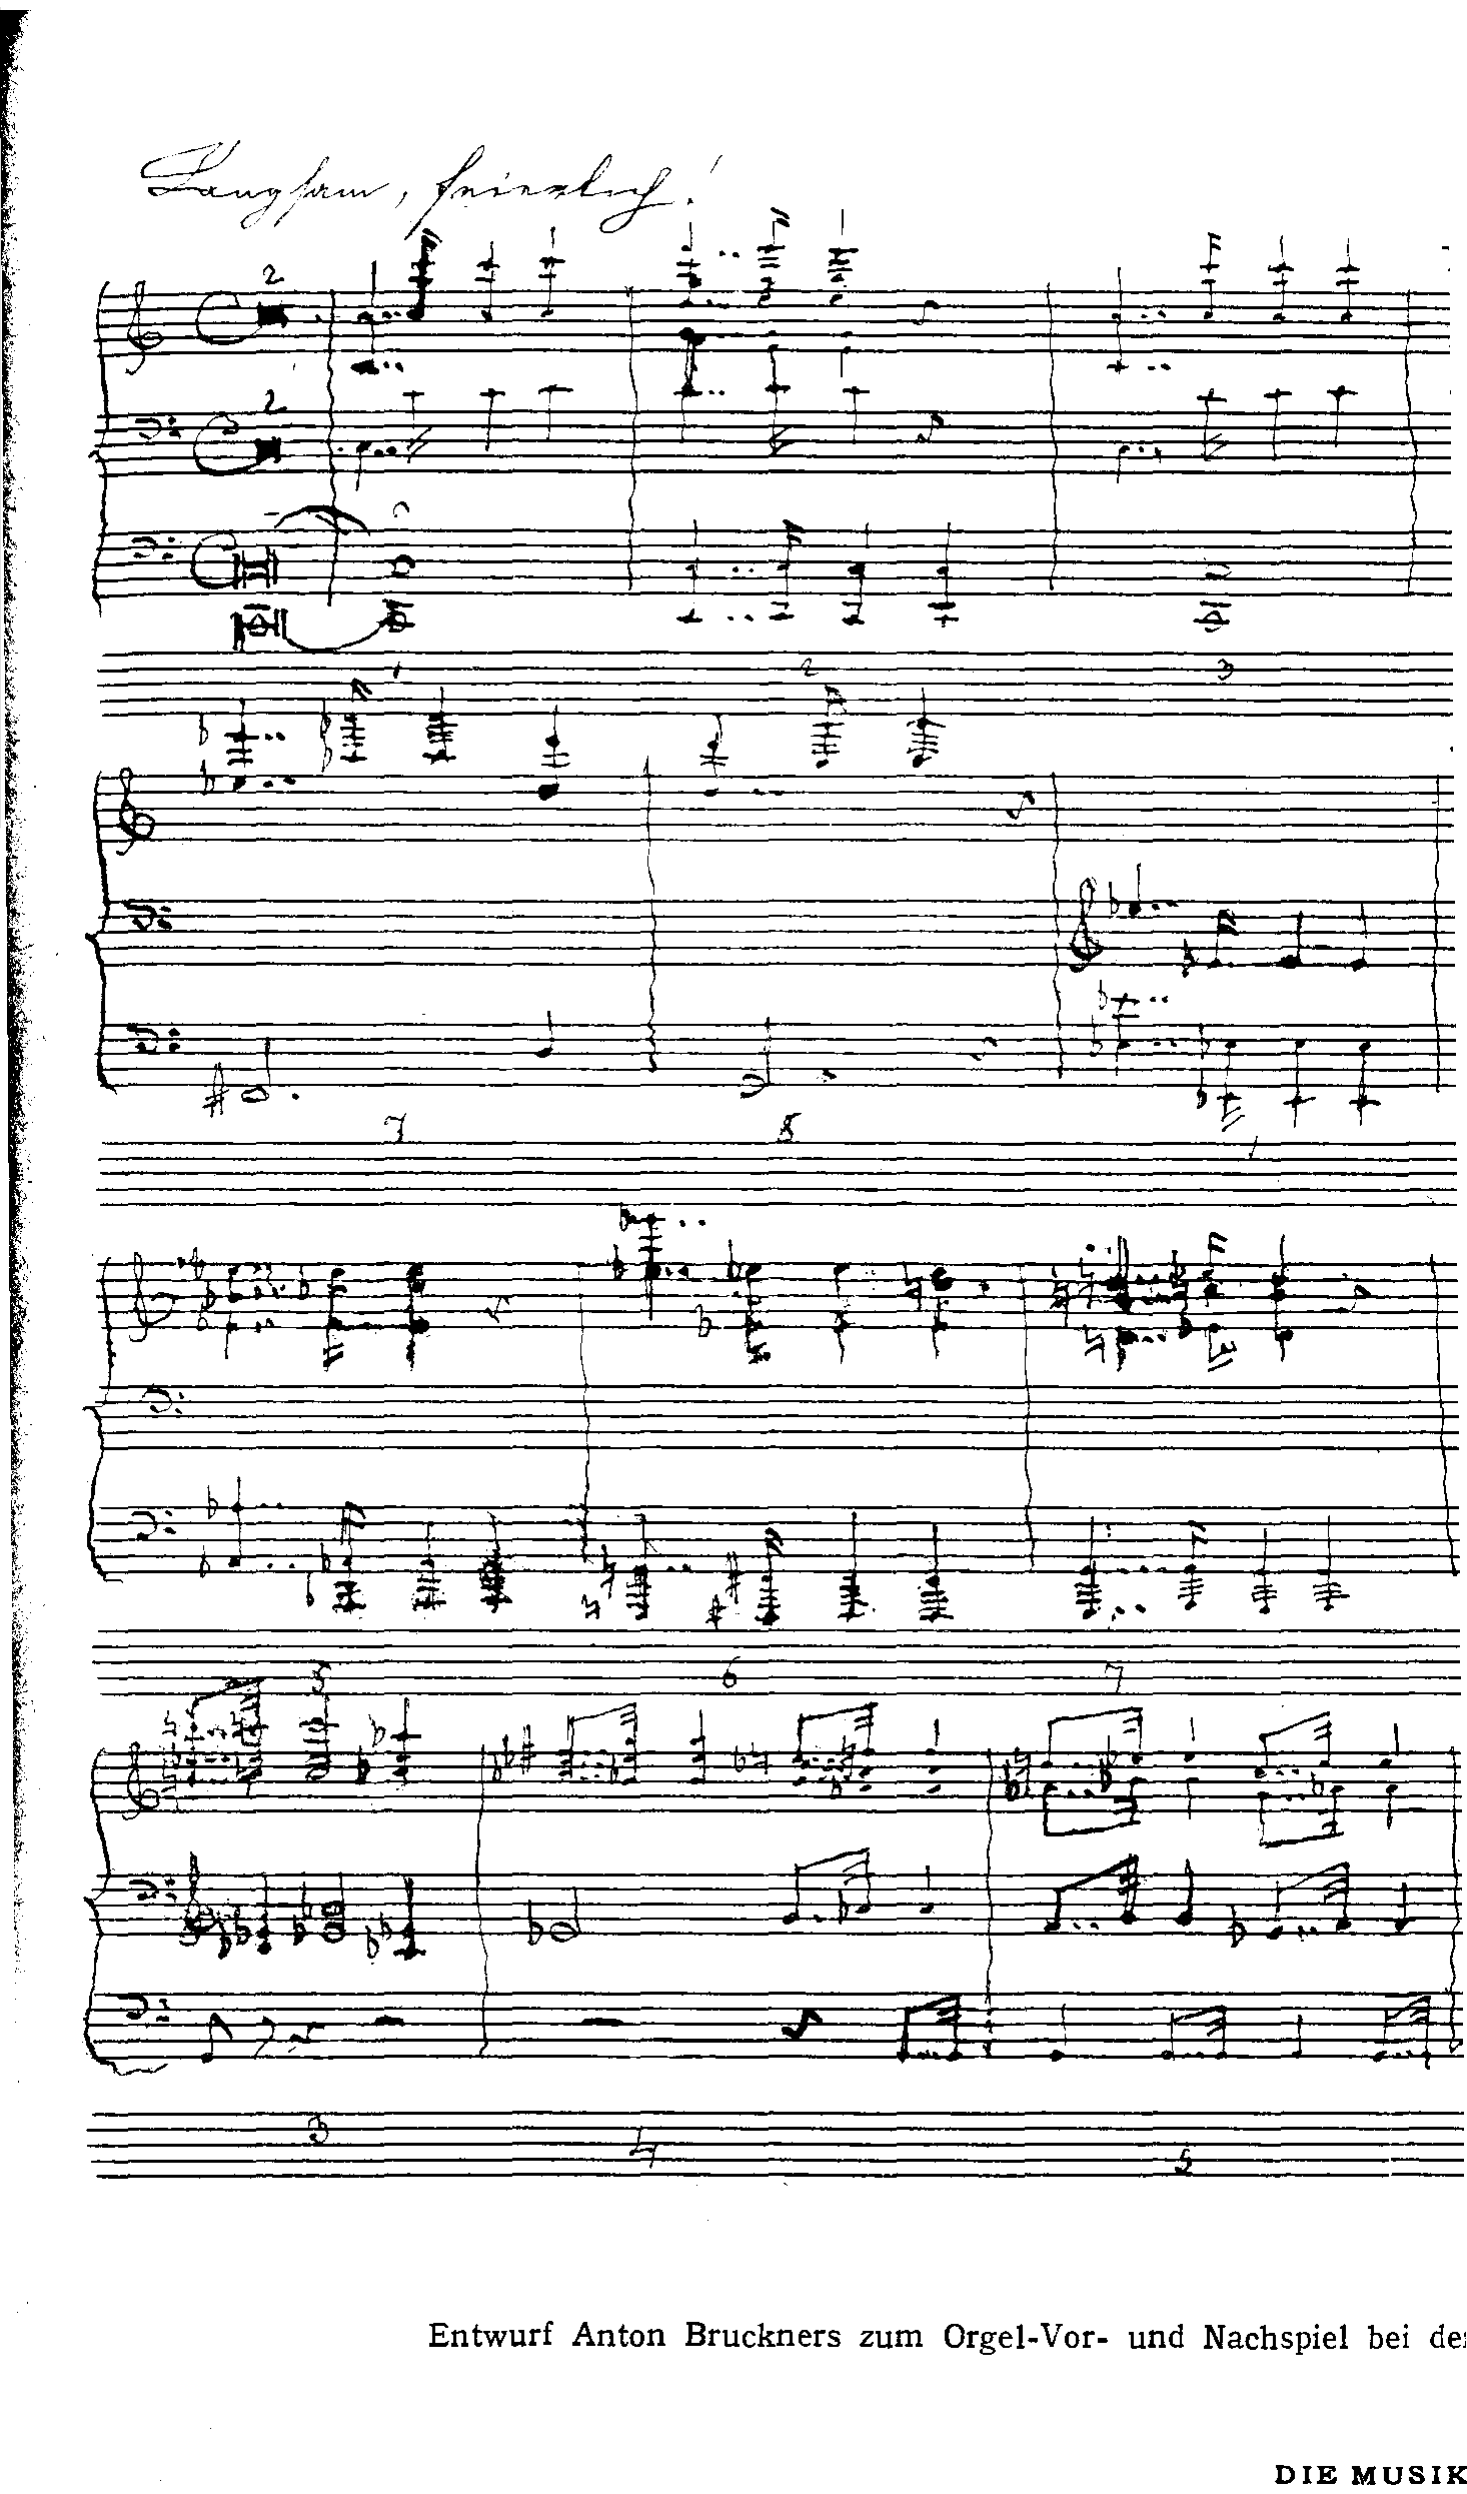 Langsam, feierlich!
2
2
1 2 3
7 8 1
5 6 7
3 4 5
Entwurf Anton Bruckners zum Orgel-Vor- und Nachspiel bei de
DIE MUSIK